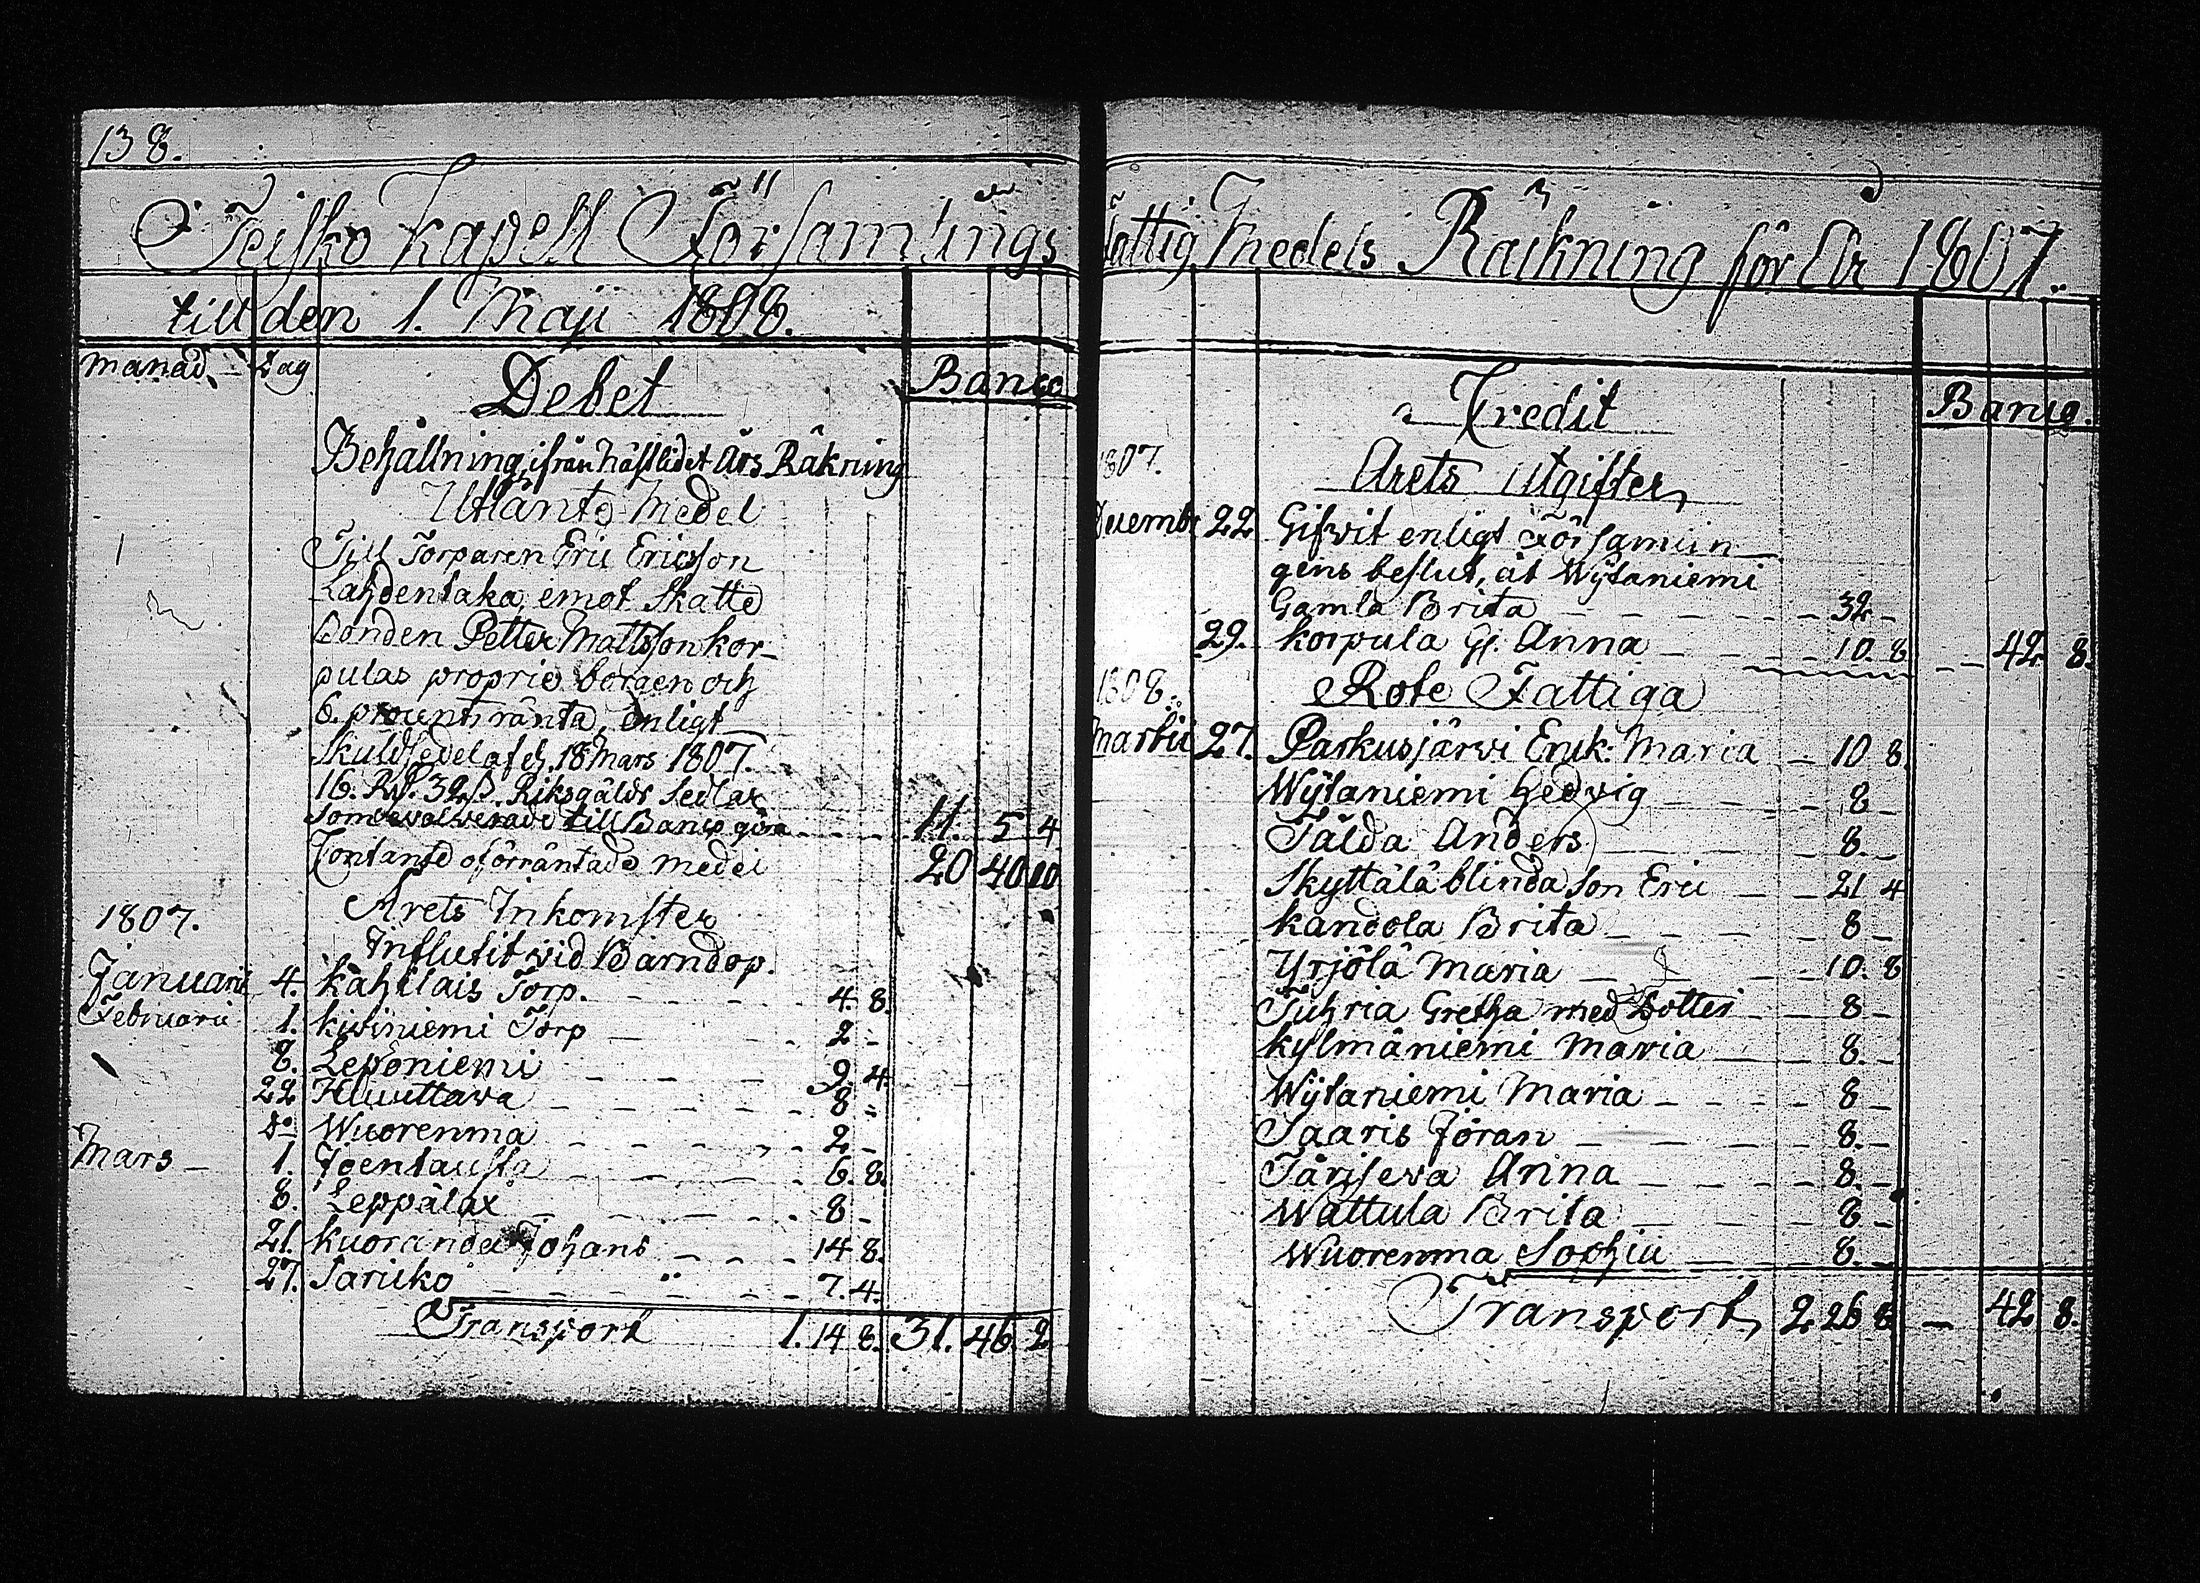 138.
Teisko Kapell Församlings
till den 1. Maji 1808.
Manad. Dag
Debet
Banco
Behållning ifrån näst lidet Års Räkning
Utlänte Medel
Till Torparen Eric Ericsson
Lahdentaka, emot Skatte
bonden Petter Mattsson Kor-
pulas proprie borgen och
6. procents ränta, enligt
Skuldsedel af d. 18 Mars 1807.
16. Rd. 32 ß. Riksgälds Sedlar
som evalverade till Banco göra 11. 5 4
Contante oförräntade medel 20 40 10
1807. Årets Inkomster
Influtit vid Barndop.
Januarii 4. Kähilais Torp. 4. 8.
Februarii 1. Kiviniemi Torp 2 -
8. Leponiemi 9 4.
22 8 -
Do Wuorenma 2 -
Mars 1. Joentausta 6. 8.
8. Leppälax 8 -
21. Kuoranda Johans 14 8.
27. 7. 4.
Transport 1. 14 8. 31. 46. 2
Fattig Medels Räkning för År 1807.
Credit
Banco.
1807. Årets Utgifter
Decembr 22 Gifvit enligt Församlin
gens beslut, åt Wÿtaniemi
Gamla Brita 32 -
29. Korpula Gl. Anna 10. 8 - 42 8.
1808. Rote Fattiga
Martii 27. Parkusjärvi Enk: Maria 10 8.
Wÿtaniemi Hedvig 8 -
Tälda Anders 8 -
Skyttälä blinda Son Eric 21 4
Kandola Brita 8 -
Yrjölä Maria 10. 8
Tuhria Gretha med Dotter 8 -
Kylmäniemi Maria 8 -
Wÿtaniemi Maria 8 -
Saaris Jöran 8. -
Anna 8. -
Wattula Brita 8 -
Wuorenma Sophia 8. -
Transport 2 26 8 - 42 8.